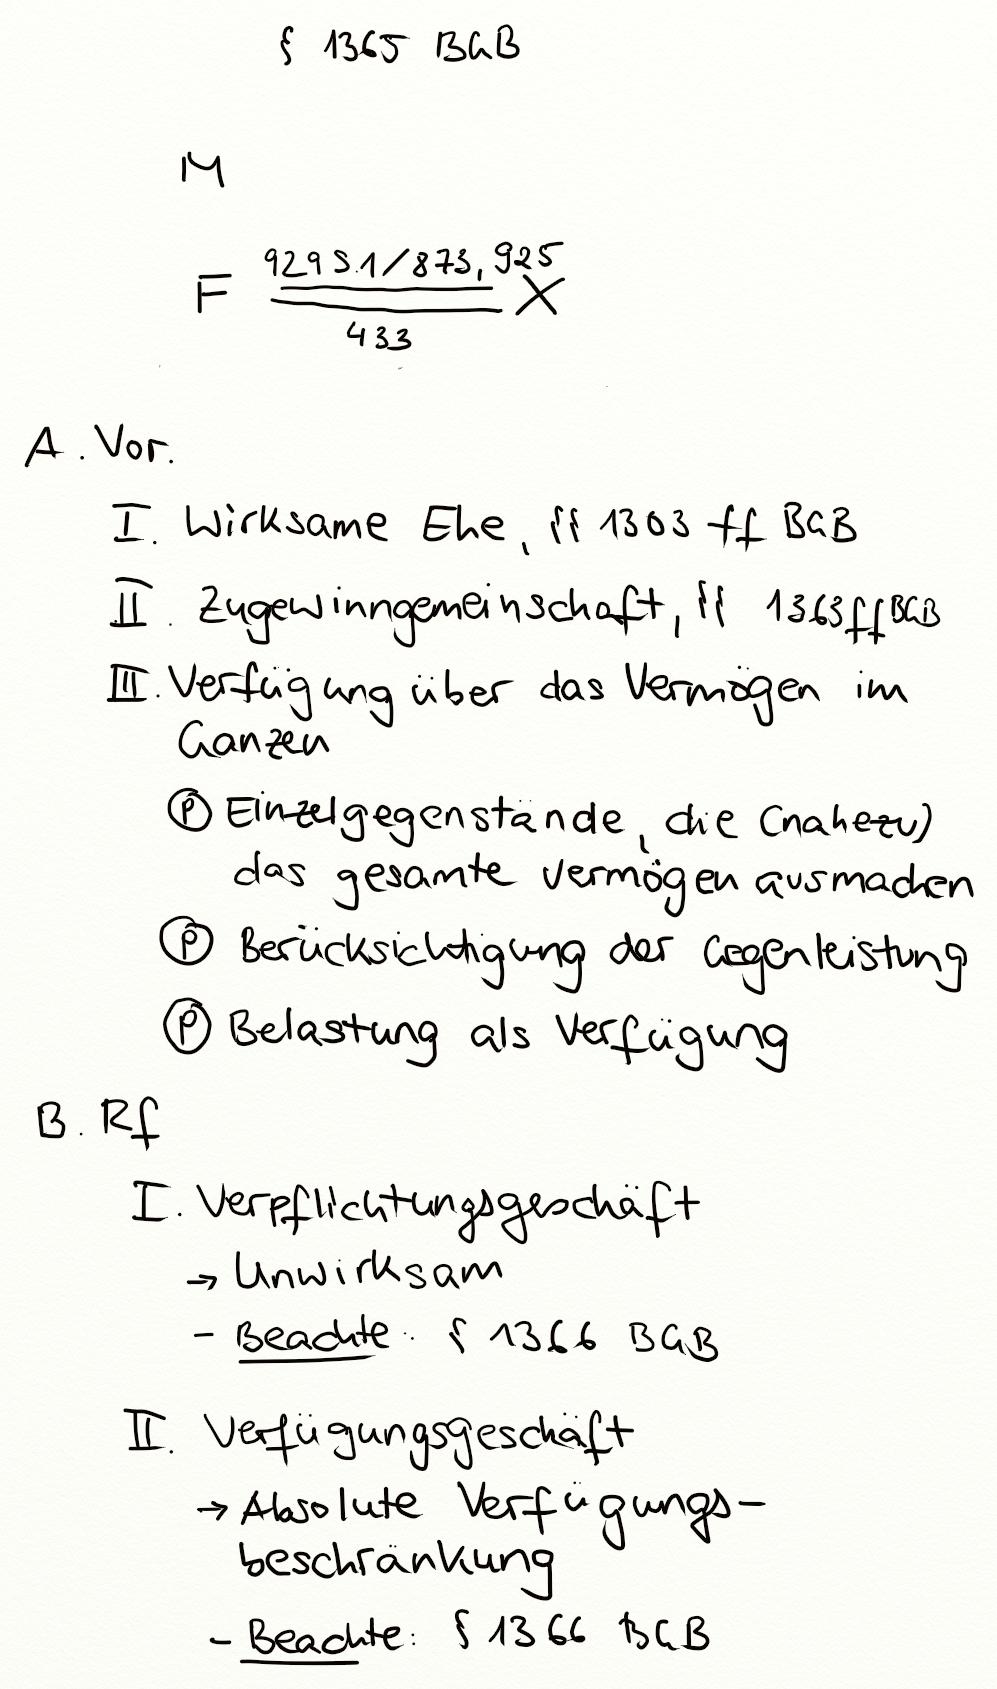 § 1365 BGB
M
929 S.1/873, 925
F X
433
A. Vor.
I. Wirksame Ehe, §§ 1303 ff BGB
II. Zugewinngemeinschaft, §§ 1363 ff BGB
III. Verfügung über das Vermögen im
Ganzen
(P) Einzelgegenstände, die (nahezu)
das gesamte Vermögen ausmachen
(P) Berücksichtigung der Gegenleistung
(P) Belastung als Verfügung
B. Rf
I. Verpflichtungsgeschäft
→ Unwirksam
- Beachte: § 1366 BGB
II. Verfügungsgeschäft
→ Absolute Verfügungs-
beschränkung
- Beachte: § 1366 BGB